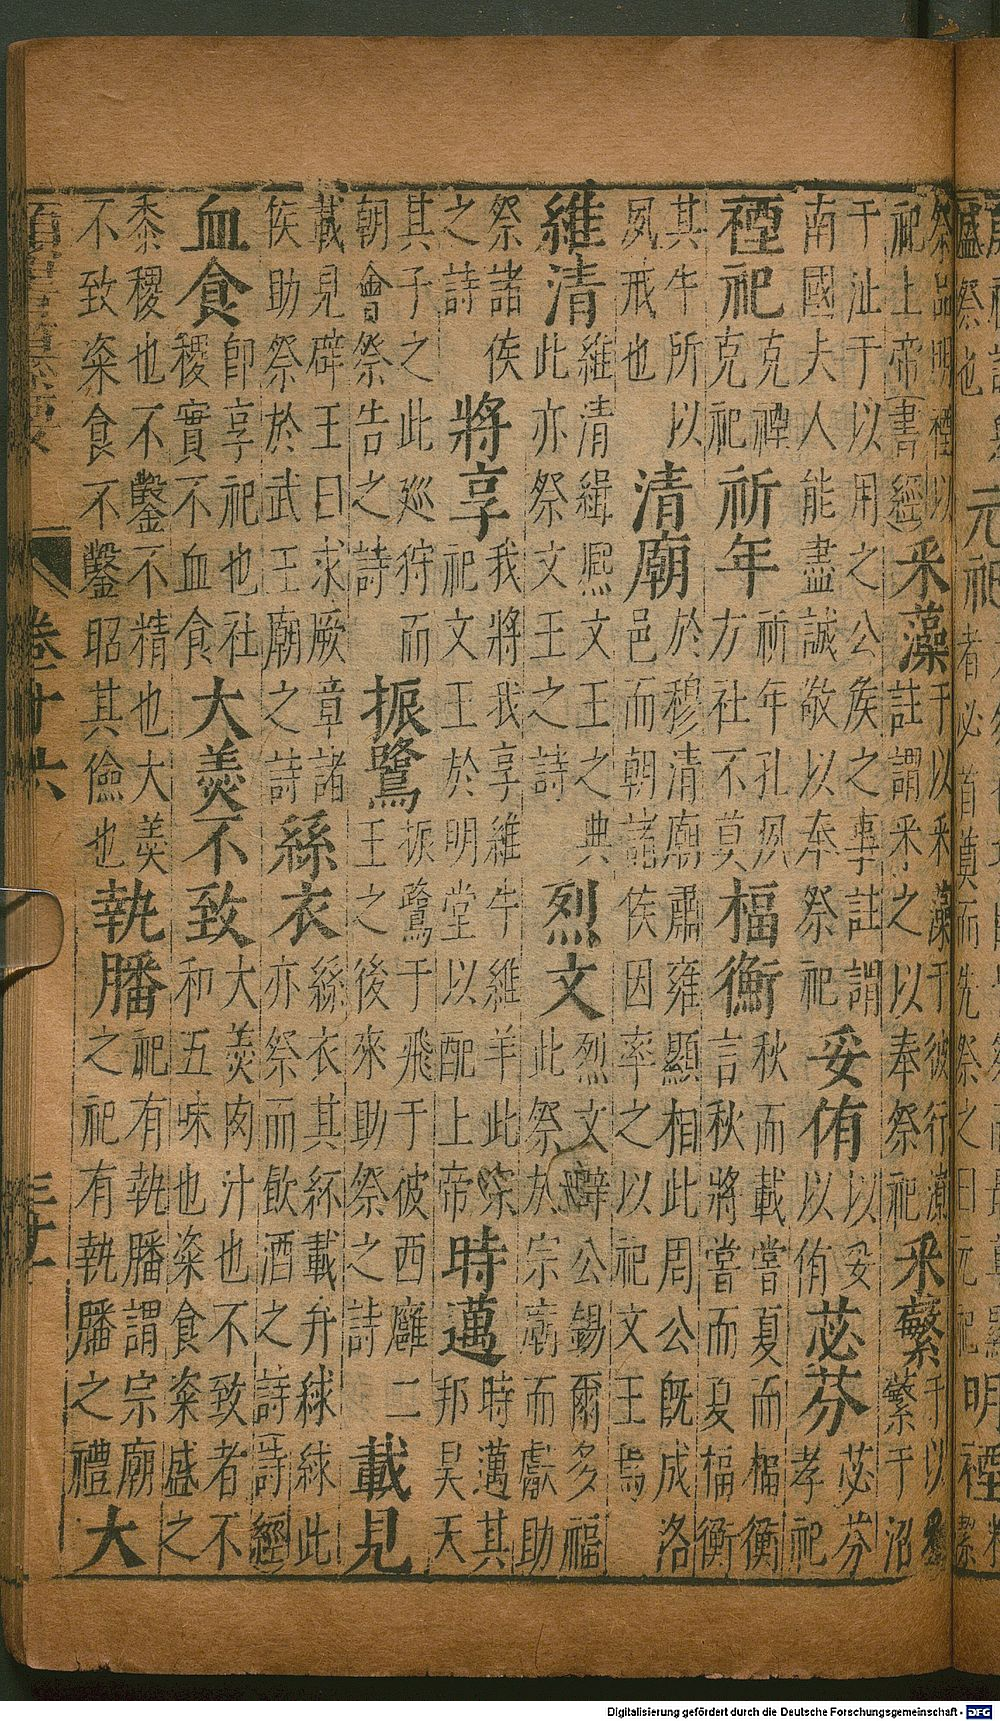 盛祭也
元祀
明禋
祭品明禋以
祀上帝書經
采藻
于以采藻于彼行潦
註謂采之以奉祭祀
采蘩
于以采
蘩于沼
于沚于以用之公矦之事註謂
南國夫人能盡誠敬以奉祭祀
妥侑
以妥
以侑
苾芬
苾芬
孝祀
禋祀
克禋
克祀
祈年
祈年孔夙
方社不莫
楅衡
秋而載嘗夏而楅衡
言秋將嘗而夏楅衡
其牛所以
夙戒也
清廟
於穆清廟肅雍顯相此周公既成洛
邑而朝諸矦因率之以祀文王焉
維清
維清緝熙文王之典
此亦祭文王之詩
烈文
烈文辟公錫爾多福
此祭於宗廟而獻助
祭諸矦
之詩
將享
我將我享維牛維羊此宗
祀文王於明堂以配上帝
時邁
時邁其
邦昊天
其子之此廵狩而
朝會祭告之詩
振鷺
振鷺于飛于彼西雝二
王之後來助祭之詩
載見
載見辟王曰求厥章諸
矦助祭於武王廟之詩
絲衣
絲衣其紑載弁絿絿此
亦祭而飲酒之詩詩經
血食
即享祀也社
稷實不血食
大羮不致
大羮肉汁也不致者不
和五味也粢食粢盛之
黍稷也不鑿不精也大羮
不致粢食不鑿昭其儉也
執膰
祀有執膰謂宗廟
之祀有執膰之禮
大
卷廿六
Digitalisierung gefördert durch die Deutsche Forschungsgemeinschaft - DFG